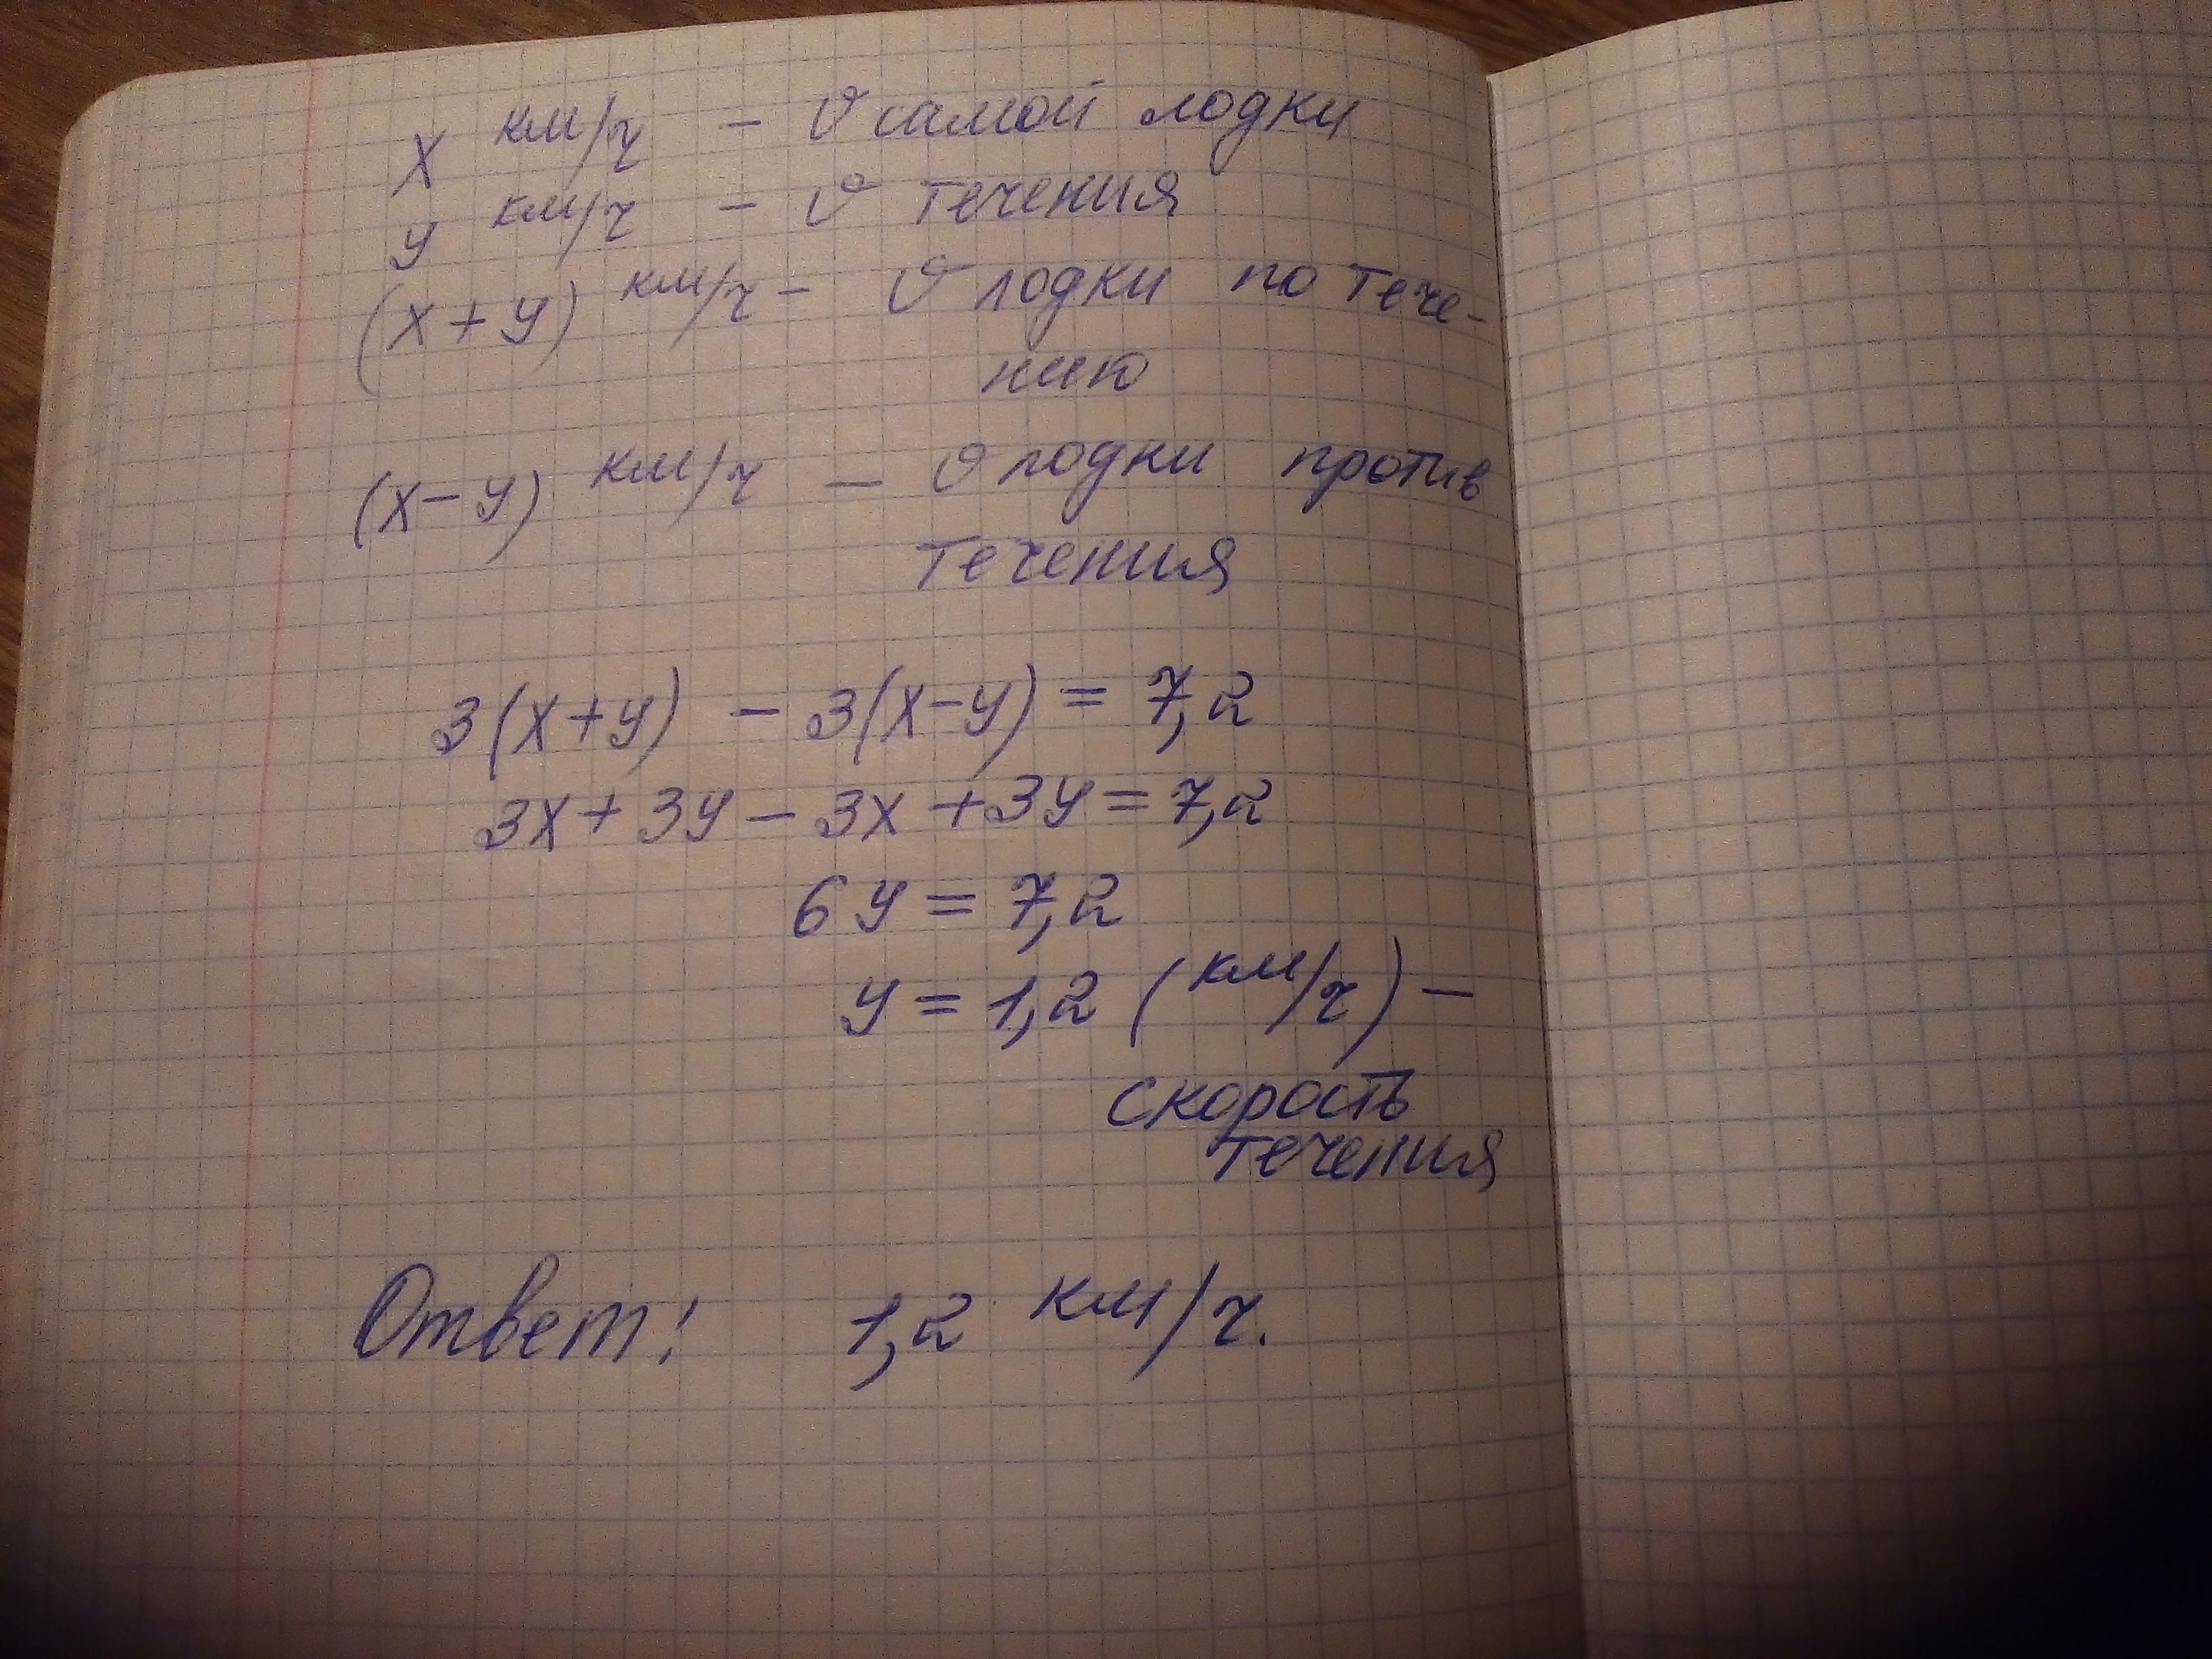 x км/ч - υ самой лодки
y км/ч - υ течения
(x+y) км/ч - υ лодки по тече-
нию
(x-y) км/ч - υ лодки против
течения
3(x+y) - 3(x-y) = 7,2
3x + 3y - 3x + 3y = 7,2
6y = 7,2
y = 1,2 (км/ч) -
скорость
течения
Ответ: 1,2 км/ч.